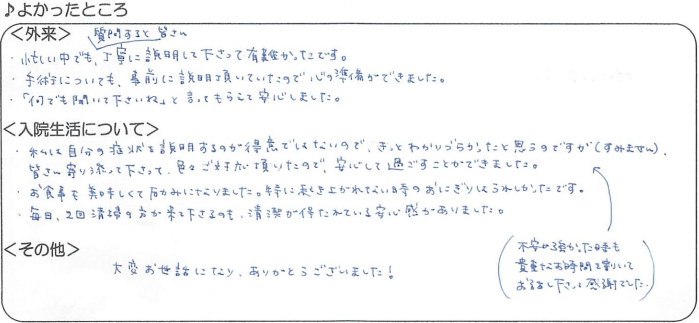 ♪よかったところ
＜外来＞ 質問すると皆さん
・忙しい中でも、丁寧に説明して下さって有難かったです。
・手術についても、事前に説明頂いていたので心の準備ができました。
・「何でも聞いて下さいね」と言ってもらえて安心しました。
＜入院生活について＞
・私は自分の症状を説明するのが得意ではないので、きっとわかりづらかったと思うのですが(すみません)、
皆さん寄り添って下さって、色々ご対応頂いたので、安心して過ごすことができました。
・お食事も美味しくて励みになりました。特に起き上がれない時のおにぎりはうれしかったです。
・毎日、2回清掃の方が来て下さるのも、清潔が保たれている安心感がありました。
(不安が強かった時も
貴重なお時間を割いて
お話し下さって感謝でした)
＜その他＞
大変お世話になり、ありがとうございました!